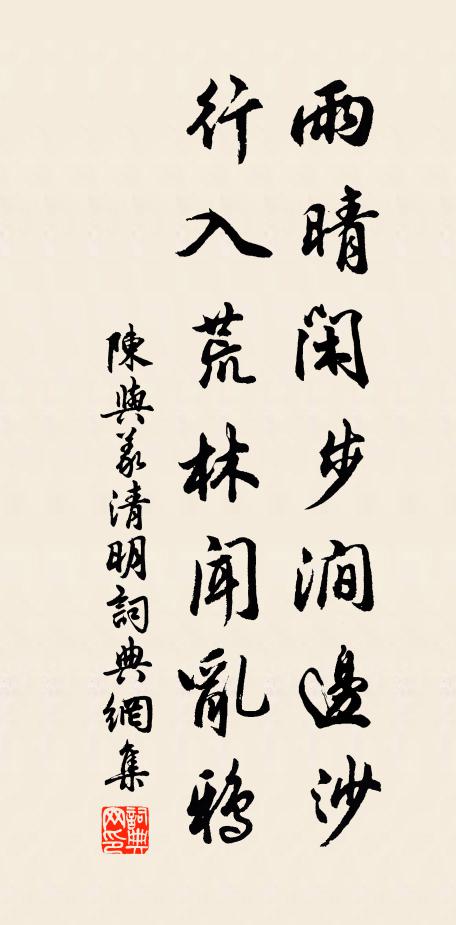 雨晴閑步澗邊沙
行入荒林聞亂鴉
陳與義清明詞典網集
詞典网印